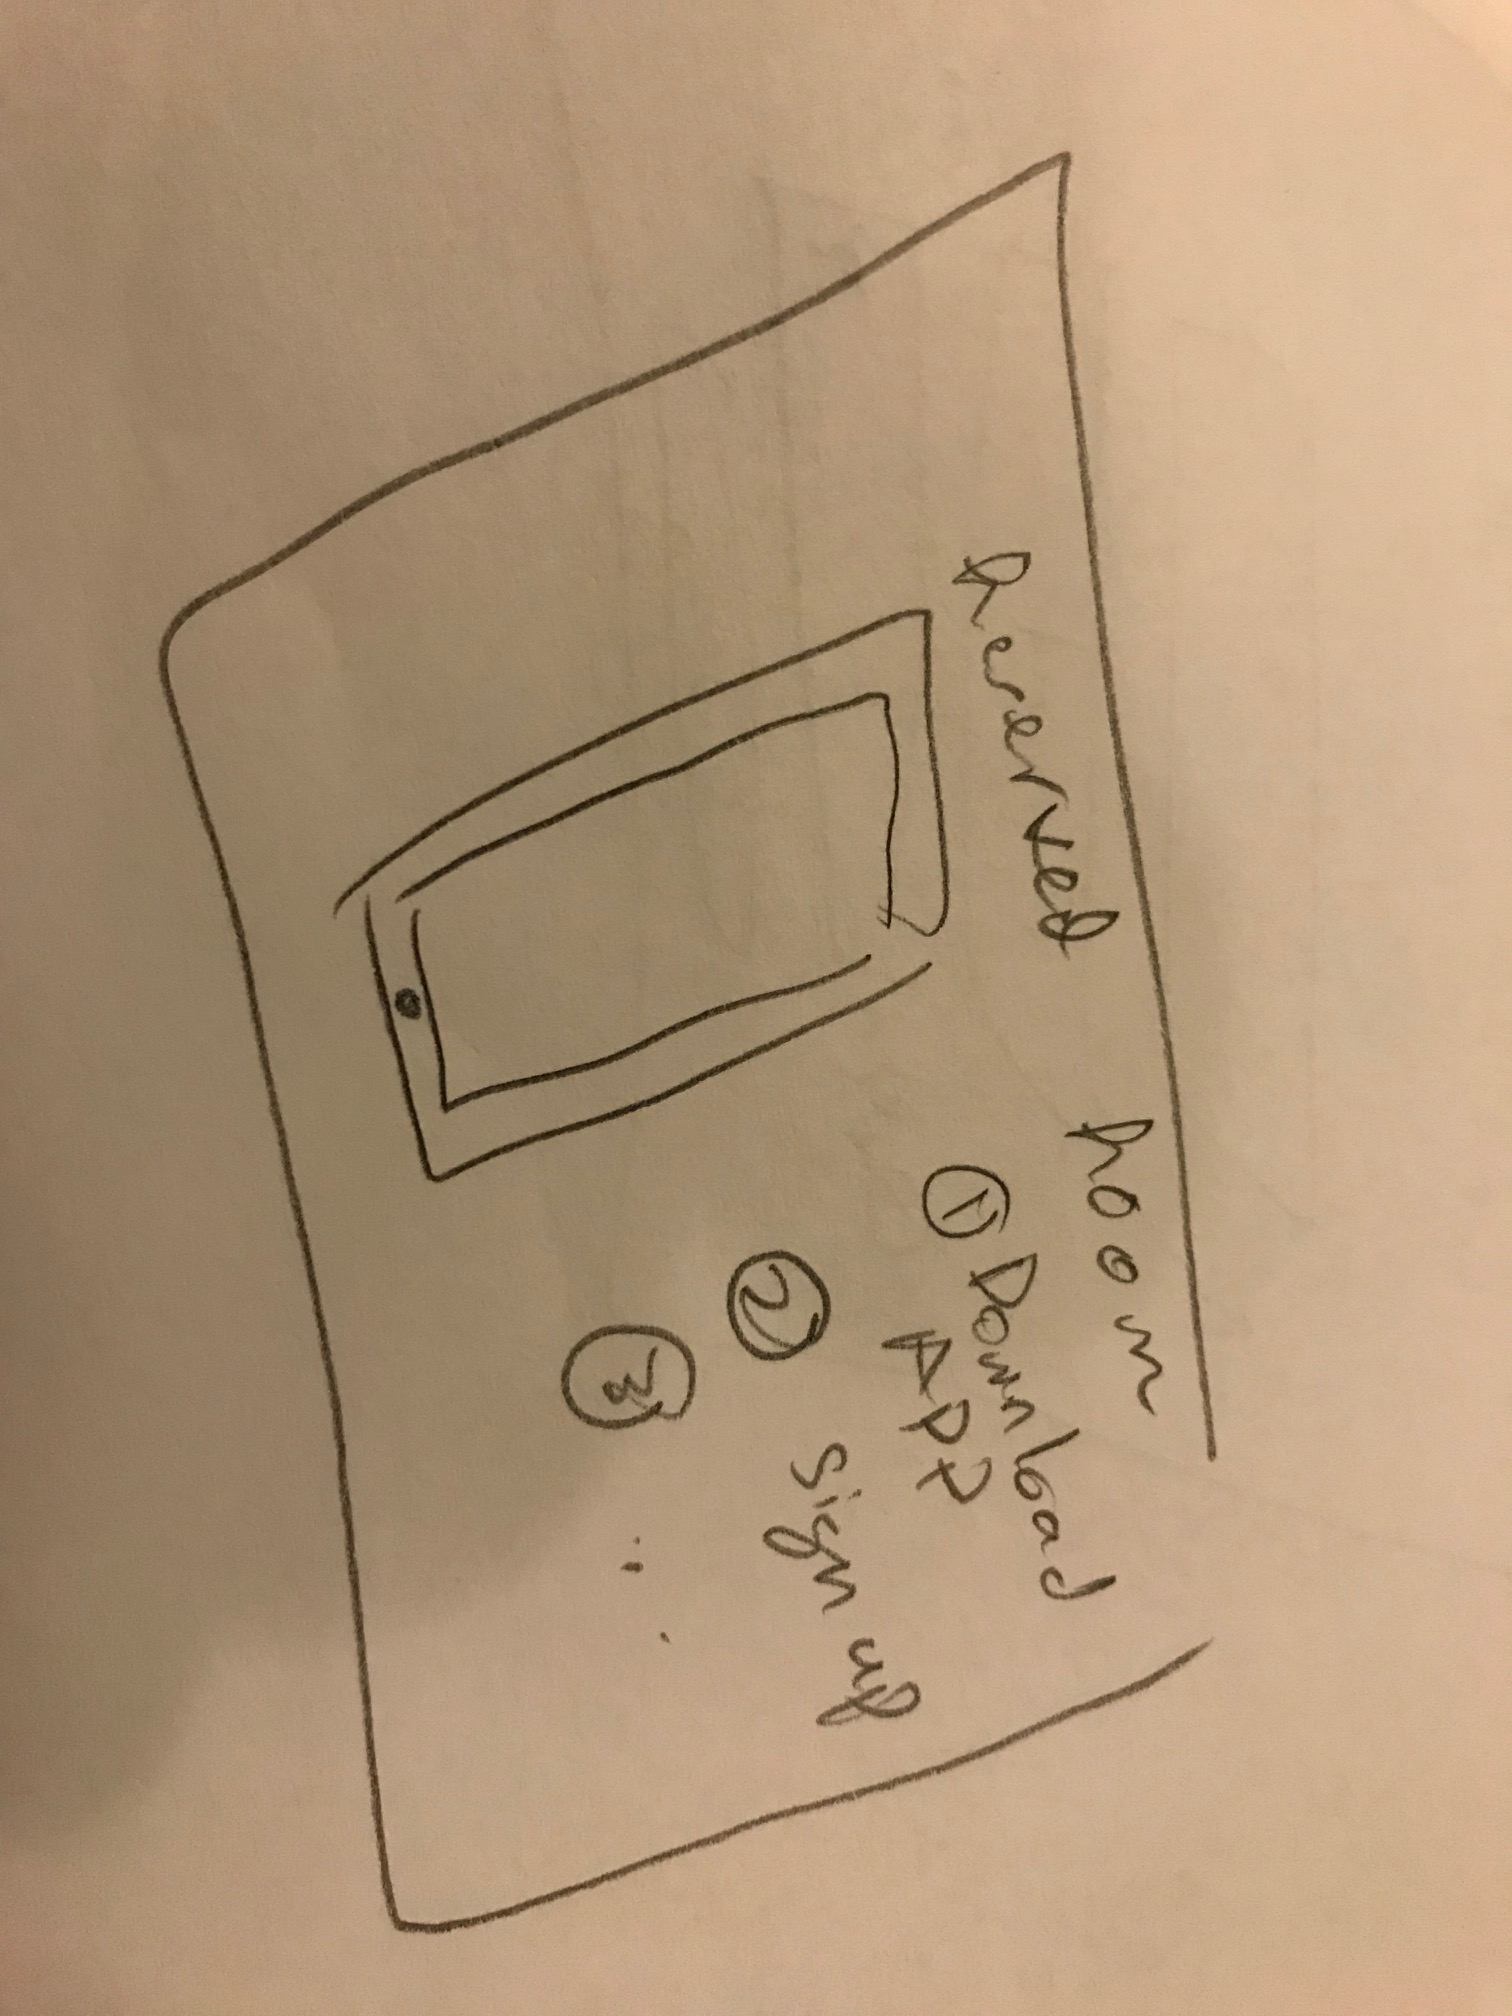 Reserved Room
① Download
APP
② Sign up
③ . .